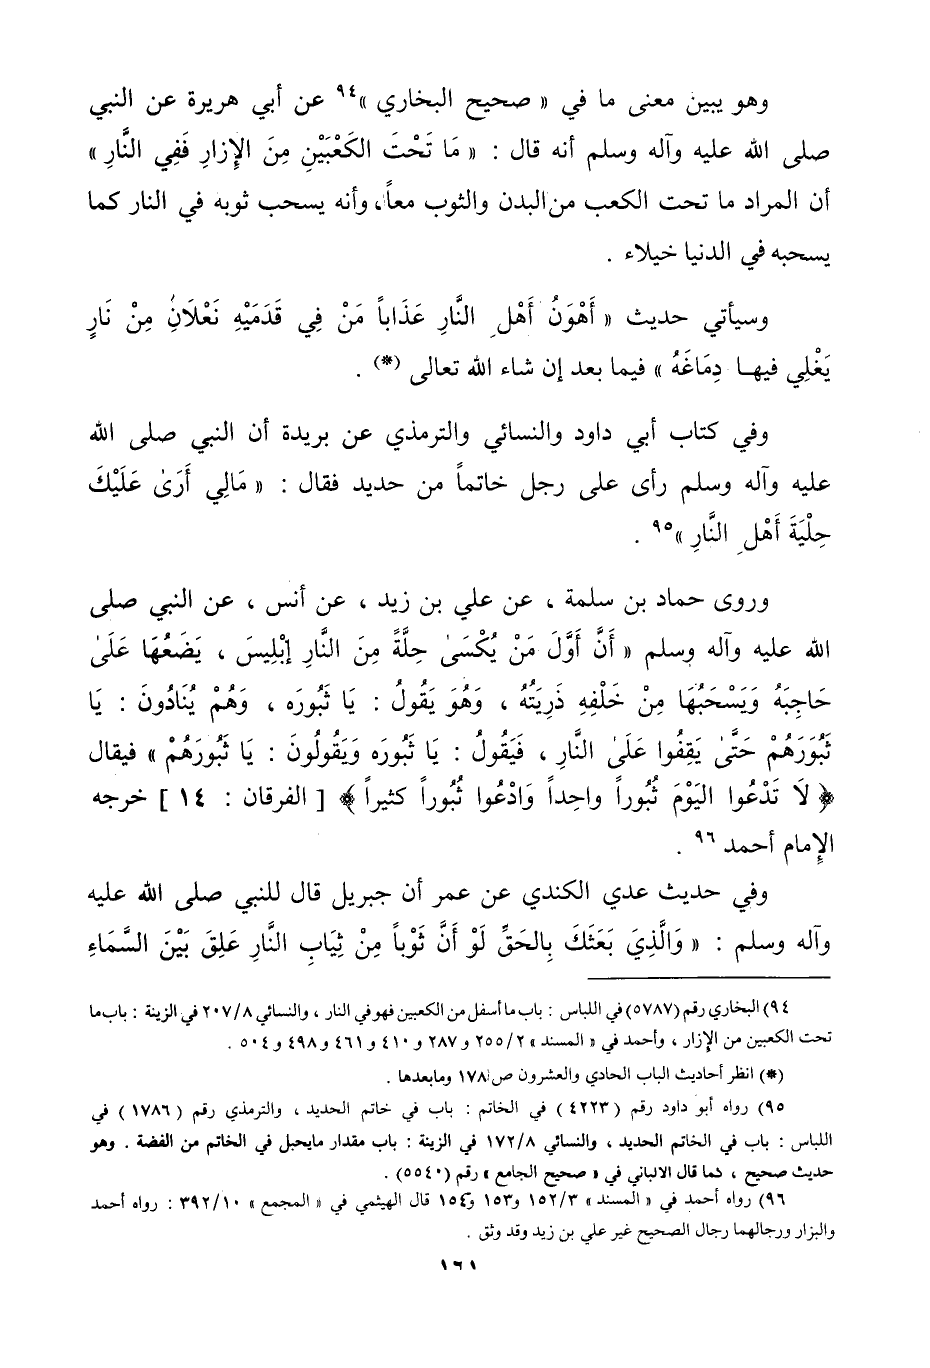 وهو يبين معنى ما في « صحيح البخاري »٩٤ عن أبي هريرة عن النبي
صلى الله عليه وآله وسلم أنه قال : « مَا تَحْتَ الكَعْبَيْنِ مِنَ الإِزَارِ فَفِي النَّارِ »
أن المراد ما تحت الكعب من البدن والثوب معاً، وأنه يسحب ثوبه في النار كما
يسحبه في الدنيا خيلاء .
وسيأتي حديث « أَهْوَنُ أَهْلِ النَّارِ عَذَاباً مَنْ فِي قَدَمَيْهِ نَعْلَانِ مِنْ نَارٍ
يَغْلِي فيهـا دِمَاغَهُ » فيما بعد إن شاء الله تعالى (*) .
وفي كتاب أبي داود والنسائي والترمذي عن بريدة أن النبي صلى الله
عليه وآله وسلم رأى على رجل خاتماً من حديد فقال : « مَالِي أَرَىٰ عَلَيْكَ
حِلْيَةَ أَهْلِ النَّارِ »٩٥ .
وروى حماد بن سلمة ، عن علي بن زيد ، عن أنس ، عن النبي صلى
الله عليه وآله وسلم « أَنَّ أَوَّلَ مَنْ يُكْسَىٰ حِلَّةً مِنَ النَّارِ إبْلِيسَ ، يَضَعُهَا عَلَىٰ
حَاجِبَهُ وَيَسْحَبُهَا مِنْ خَلْفِهِ ذَرِيَتُهُ ، وَهُوَ يَقُولُ : يَا ثُبُورَه ، وَهُمْ يُنَادُونَ : يَا
ثُبُورَهُمْ حَتَّىٰ يَقِفُوا عَلَىٰ النَّارِ ، فَيَقُولُ : يَا ثُبُورَه وَيَقُولُونَ : يَا ثُبُورَهُمْ » فيقال
﴿ لَا تَدْعُوا اليَوْمَ ثُبُوراً واحِداً وَادْعُوا ثُبُوراً كثيراً ﴾ [ الفرقان : ١٤ ] خرجه
الإِمام أحمد ٩٦ .
وفي حديث عدي الكندي عن عمر أن جبريل قال للنبي صلى الله عليه
وآله وسلم : « وَالَّذِي بَعَثَكَ بِالحَقِّ لَوْ أَنَّ ثَوْباً مِنْ ثِيَابِ النَّارِ عَلِقَ بَيْنَ السَّمَاءِ
٩٤) البخاري رقم (٥٧٨٧) في اللباس : باب ما أسفل من الكعبين فهو في النار ، والنسائي ٢٠٧/٨ في الزينة : باب ما
تحت الكعبين من الإزار ، وأحمد في « المسند » ٢٥٥/٢ و ٢٨٧ و ٤١٠ و ٤٦١ و ٤٩٨ و ٥٠٤ .
(*) انظر أحاديث الباب الحادي والعشرون ص ١٧٨ ومابعدها .
٩٥) رواه أبو داود رقم (٤٢٢٣) في الخاتم : باب في خاتم الحديد ، والترمذي رقم (١٧٨٦) في
اللباس : باب في الخاتم الحديد ، والنسائي ١٧٢/٨ في الزينة : باب مقدار مايحبل في الخاتم من الفضة . وهو
حديث صحيح ، كما قال الالباني في « صحيح الجامع » رقم (٥٥٤٠) .
٩٦) رواه أحمد في « المسند » ١٥٢/٣ و١٥٣ و١٥٤ قال الهيثمي في « المجمع » ٣٩٢/١٠ : رواه أحمد
والبزار ورجالهما رجال الصحيح غير علي بن زيد وقد وثق .
١٦١